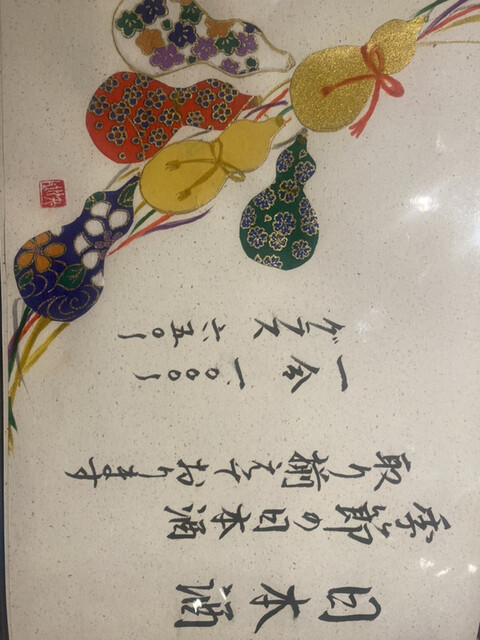 日本酒
季節の日本酒
取り揃えております
一合 一、〇〇〇ー
グラス 六五〇ー